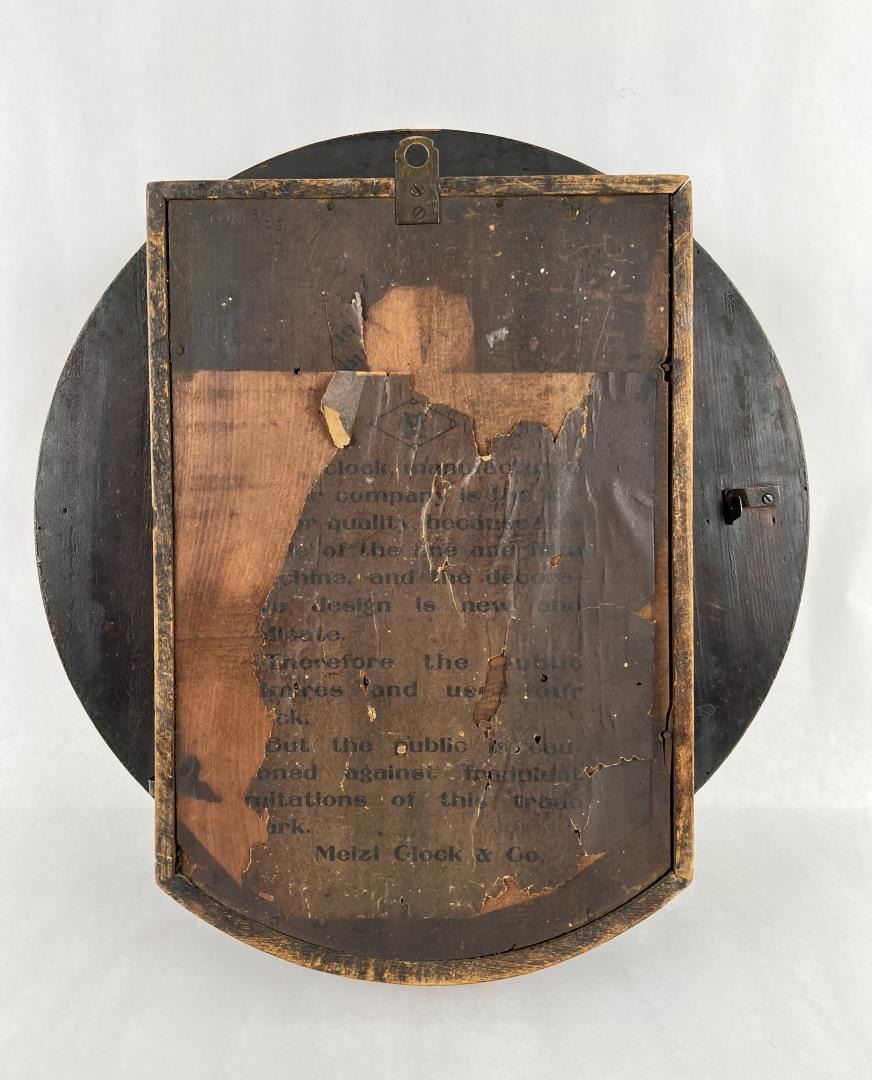 clock, manufactured
company is the
quality, because
of the fine and firm
chine, and the decora-
design is new and
licate.
Therefore the public
mires and use our
ck.
But the public is cau-
oned against fradulent
mitations of this trade
ark.
Meizi Clock & Co.